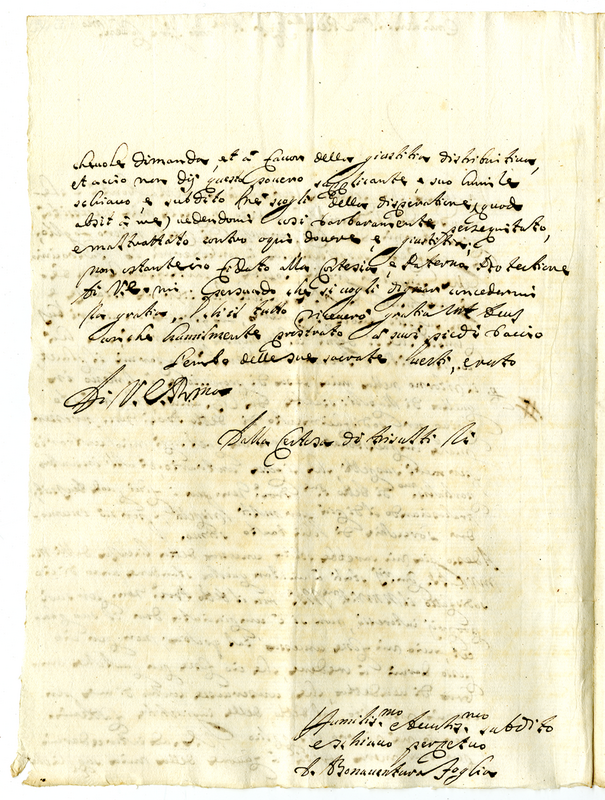 dimanda, et à favor della giustitia distributiva,
et acciò non dij questo povero supplicante, e suo humile
schiavo e subdito ne scogli della disperatione (quod
absit à me) vedendomi così barbaramente perseguitato,
e maltrattato contro ogni dovere e giustitia,
non ostante io fidato alla Cortesia, e Paterna Protectione
Di V. E. mi persuado che si vogli degnar concedermi
gratia tutto riceverò gratia Deus
humilmente prostrato a suoi piedi bacio
Lembo delle sue sacrate Vesti, e resto
Di V. E. R.ma
Dalla Certosa di Trisulti li
Humiliss.mo et Devotiss.mo subdito
e schiavo perpetuo
D. Bonaventura Foglia